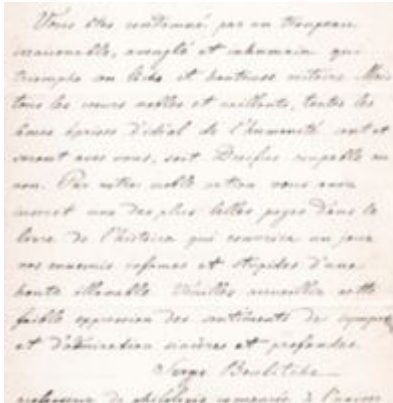 Vous êtes condamné par un troupeau
irraisonnable, aveuglé et inhumain qui
triomphe sa lâche et honteuse victoire. Mais
tous les cœurs nobles et vaillants, toutes les
âmes éprises d'idéal de l'humanité sont et
seront avec vous, soit Dreifus coupable ou
non. Par votre noble action vous avez
inscrit une des plus belles pages dans le
livre de l'histoire qui couvrira un jour
vos ennemis infames et stupides d'une
honte Veuillez accueillir cette
faible expression des sentiments de
et d'admiration sincères et profondes.
Serge
professeur de philologie comparée à